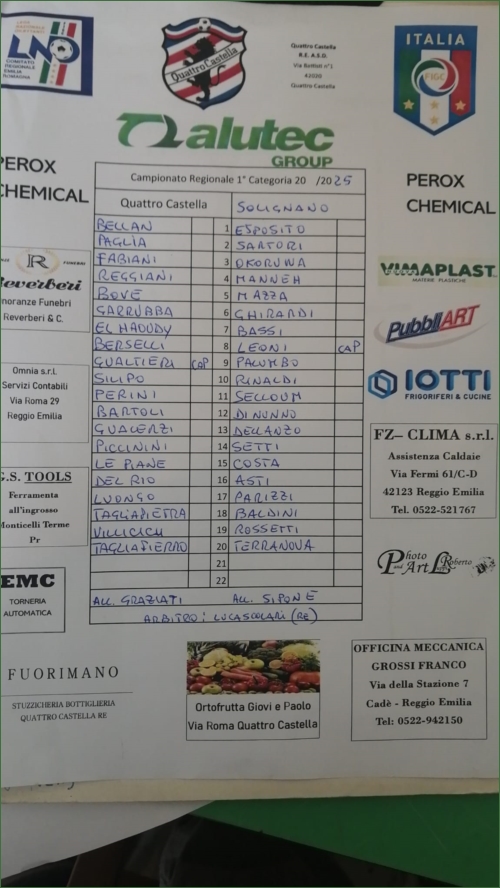 LND
COMITATO
REGIONALE
EMILIA
ROMAGNA
Quattro Castella
Quattro Castella
R.E. A.S.D.
Via Bottoli n°1
42020
Quattro Castella
ITALIA
FIGC
alutec
GROUP
PEROX
CHEMICAL
PEROX
CHEMICAL
Campionato Regionale 1° Categoria 20 /2025
Quattro Castella SOLIGNANO
BELLAN 1 ESPOSITO
PAGLIA 2 SARTORI
FABIANI 3 OKORUWA
REGGIANI 4 MANNEH
BOVE 5 MAZZA
GARRUBBA 6 GHIRARDI
EL HAOUDY 7 BASSI
BERSELLI 8 LEONI CAP
GUALTIERI CAP 9 PALUMBO
SILIPO 10 RINALDI
PERINI 11 SELLOUM
BARTOLI 12 DI NUNNO
GUALERZI 13 DELLANZO
PICCININI 14 SETTI
LE PIANE 15 COSTA
DEL RIO 16 ASTI
LUONGO 17 PARIZZI
TAGLIAPIETRA 18 BALDINI
19 ROSSETTI
TAGLIAFIERRO 20 TERRANOVA
21
22
ALL. GRAZIATI ALL. SIPONE
ARBITRO: LUCA SCOLARI (RE)
R
Reverberi
Onoranze Funebri
Reverberi & C.
Omnia s.r.l.
Servizi Contabili
Via Roma 29
Reggio Emilia
G.S. TOOLS
Ferramenta
all'ingrosso
Monticelli Terme
Pr
EMC
TORNERIA
AUTOMATICA
FUORIMANO
STUZZICHERIA BOTTIGLIERIA
QUATTRO CASTELLA RE
VIMAPLAST
MATERIE PLASTICHE
PubbliART
IOTTI
FRIGORIFERI & CUCINE
FZ– CLIMA s.r.l.
Assistenza Caldaie
Via Fermi 61/C-D
42123 Reggio Emilia
Tel. 0522-521767
Photo
and Art Roberto
Ortofrutta Giovi e Paolo
Via Roma Quattro Castella
OFFICINA MECCANICA
GROSSI FRANCO
Via della Stazione 7
Cadè - Reggio Emilia
Tel: 0522-942150